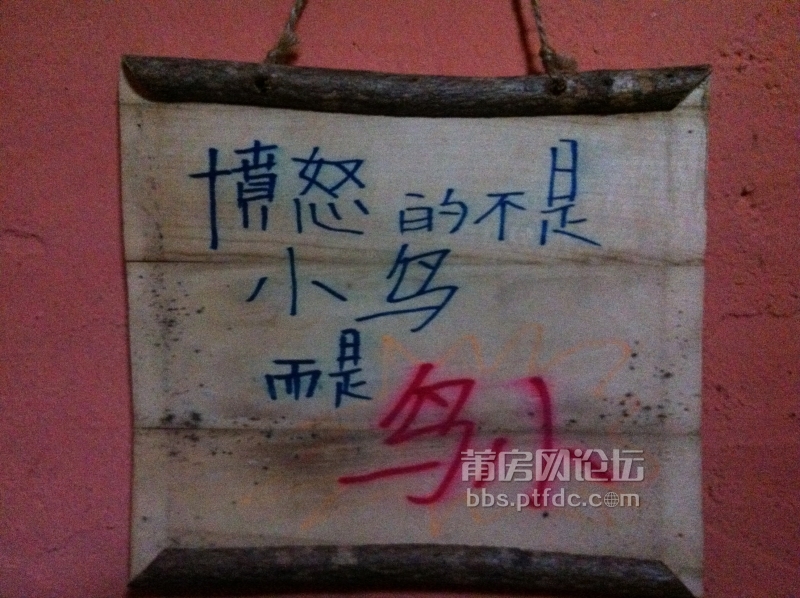 憤怒的不是
小鸟
而是
鸟小
莆房网论坛
bbs.ptfdc.com